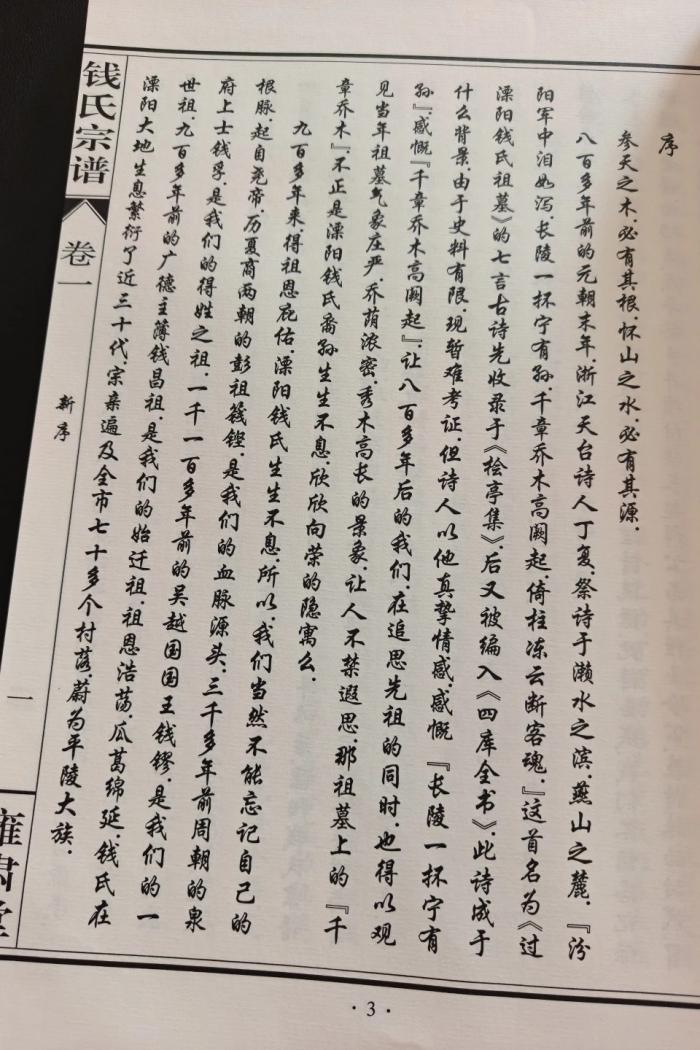 序
参天之木，必有其根，怀山之水，必有其源。
八百多年前的元朝末年，浙江天台诗人丁复，祭诗于濑水之滨，燕山之麓，『汾
阳军中泪如泻，长陵一抔宁有孙，千章乔木高阙起，倚柱冻云断客魂。』这首名为《过
溧阳钱氏祖墓》的七言古诗先收录于《桧亭集》，后又被编入《四库全书》，此诗成于
什么背景，由于史料有限，现暂难考证，但诗人以他真挚情感，感慨『长陵一抔宁有
孙』，感慨『千章乔木高阙起』，让八百多年后的我们，在追思先祖的同时，也得以观
见当年祖墓气象庄严，乔荫浓密，秀木高长的景象，让人不禁遐思，那祖墓上的『千
章乔木』，不正是溧阳钱氏裔孙生生不息，欣欣向荣的隐寓么。
九百多年来，得祖恩庇佑，溧阳钱氏生生不息，所以，我们当然不能忘记自己的
根脉，起自尧帝，历夏商两朝的彭祖篯铿，是我们的血脉源头，三千多年前周朝的泉
府上士钱孚，是我们的得姓之祖，一千一百多年前的吴越国国王钱镠，是我们的一
世祖，九百多年前的广德主簿钱昌祖，是我们的始迁祖，祖恩浩荡，瓜葛绵延，钱氏在
溧阳大地生息繁衍了近三十代，宗亲遍及全市七十多个村落，蔚为平陵大族。
钱氏宗谱
卷一
新序
一
雍肃堂
·3·